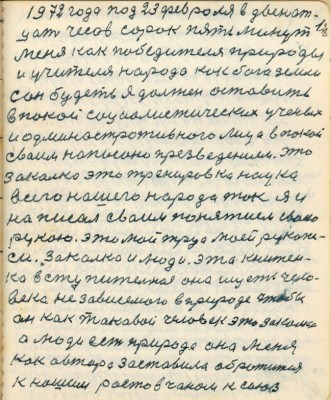 1972 года под 23 февроля в двенат-
цат чесов сорок пять минут
меня как победителя природы
и учителя народа как бога земли
сон будеть я должен оставить
в покои социолистических ученых
и одминостротивного лица в покой
своим написоно презведением. Это
Закалко это тренировка наука
всего нашего народа ток я и
написал своим понятием свояю
рукою. Это мой труд моей рукопи-
си. Закалка и люди. Эта книтен-
ка вступителная она ищеть чело-
века независемого в природе чтобы
он как таковой человек это закалка
а люди ест природа она меня
как автора заставила обротится
к нашим ростовчаном к союз